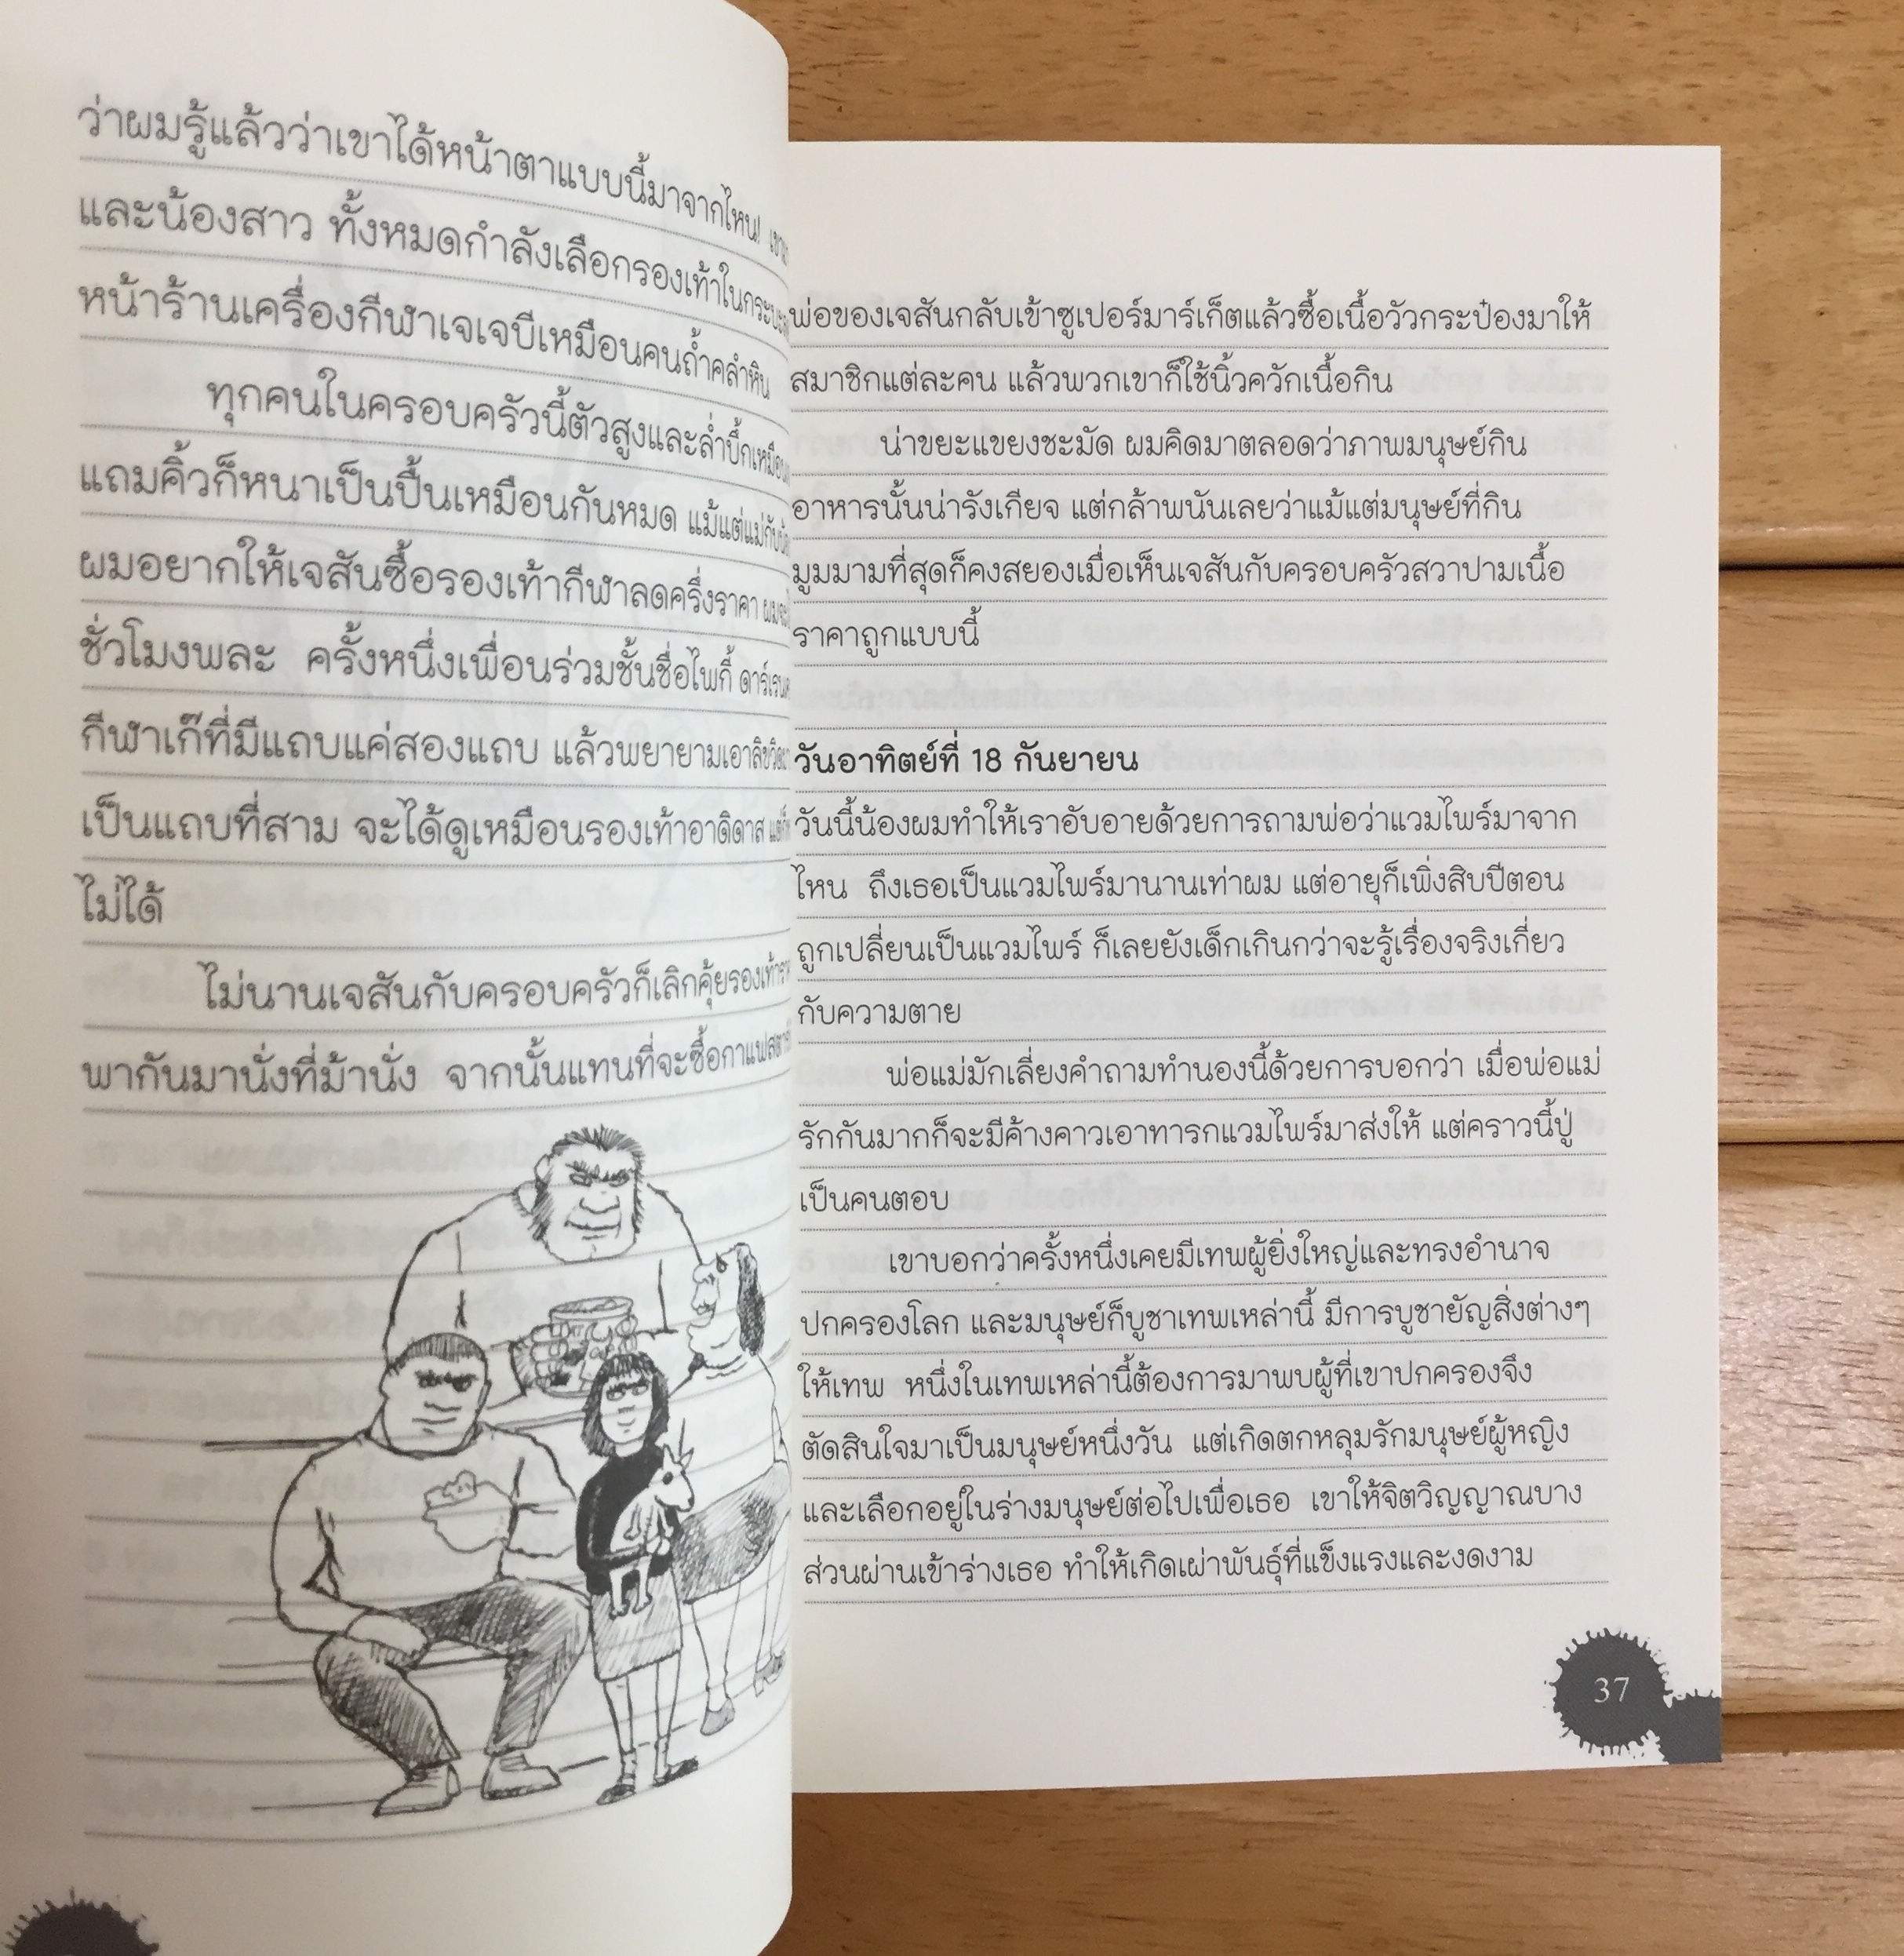 ว่าผมรู้แล้วว่าเขาได้หน้าตาแบบนี้มาจากไหน!
และน้องสาว ทั้งหมดกำลังเลือกรองเท้าในกระบะ
หน้าร้านเครื่องกีฬาเจเจบีเหมือนคนถ้ำคลำหิน
ทุกคนในครอบครัวนี้ตัวสูงและล่ำบึ้กเหมือน
แถมคิ้วก็หนาเป็นปื้นเหมือนกันหมด แม้แต่แม่กับ
ผมอยากให้เจสันซื้อรองเท้ากีฬาลดครึ่งราคา
ชั่วโมงพละ ครั้งหนึ่งเพื่อนร่วมชั้นชื่อไพกี้ ดาร์เรน
กีฬาเก๊ที่มีแถบแค่สองแถบ แล้วพยายามเอาลิขวิด
เป็นแถบที่สาม จะได้ดูเหมือนรองเท้าอาดิดาส
ไม่ได้
ไม่นานเจสันกับครอบครัวก็เลิกคุ้ยรองเท้า
พากันมานั่งที่ม้านั่ง จากนั้นแทนที่จะซื้อกาแฟ
พ่อของเจสันกลับเข้าซูเปอร์มาร์เก็ตแล้วซื้อเนื้อวัวกระป๋องมาให้
สมาชิกแต่ละคน แล้วพวกเขาก็ใช้นิ้วควักเนื้อกิน
น่าขยะแขยงชะมัด ผมคิดมาตลอดว่าภาพมนุษย์กิน
อาหารนั้นน่ารังเกียจ แต่กล้าพนันเลยว่าแม้แต่มนุษย์ที่กิน
มูมมามที่สุดก็คงสยองเมื่อเห็นเจสันกับครอบครัวสวาปามเนื้อ
ราคาถูกแบบนี้
วันอาทิตย์ที่ 18 กันยายน
วันนี้น้องผมทำให้เราอับอายด้วยการถามพ่อว่าแวมไพร์มาจาก
ไหน ถึงเธอเป็นแวมไพร์มานานเท่าผม แต่อายุก็เพิ่งสิบปีตอน
ถูกเปลี่ยนเป็นแวมไพร์ ก็เลยยังเด็กเกินกว่าจะรู้เรื่องจริงเกี่ยว
กับความตาย
พ่อแม่มักเลี่ยงคำถามทำนองนี้ด้วยการบอกว่า เมื่อพ่อแม่
รักกันมากก็จะมีค้างคาวเอาทารกแวมไพร์มาส่งให้ แต่คราวนี้ปู่
เป็นคนตอบ
เขาบอกว่าครั้งหนึ่งเคยมีเทพผู้ยิ่งใหญ่และทรงอำนาจ
ปกครองโลก และมนุษย์ก็บูชาเทพเหล่านี้ มีการบูชายัญสิ่งต่างๆ
ให้เทพ หนึ่งในเทพเหล่านี้ต้องการมาพบผู้ที่เขาปกครองจึง
ตัดสินใจมาเป็นมนุษย์หนึ่งวัน แต่เกิดตกหลุมรักมนุษย์ผู้หญิง
และเลือกอยู่ในร่างมนุษย์ต่อไปเพื่อเธอ เขาให้จิตวิญญาณบาง
ส่วนผ่านเข้าร่างเธอ ทำให้เกิดเผ่าพันธุ์ที่แข็งแรงและงดงาม
37